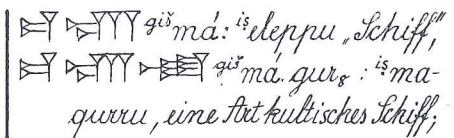 𒄑 𒈣 ᵍⁱˢ̌má: ⁱṣeleppu „Schiff",
𒄑 𒈣 ᵍⁱˢ̌má.gur₈ : ⁱṣma-
gurru, eine Art kultisches Schiff;